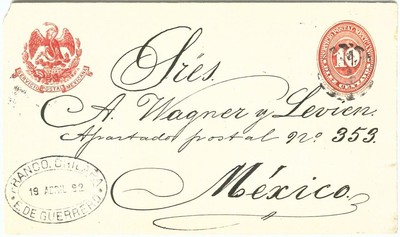 SERVICIO POSTAL MEXICANO
SERVICIO POSTAL MEXICANO
10
DIEZ CENTAVOS
Srés.
A. Wagner y Levien.
Apartado postal Nº 353.
México.
FRANCO. CHILAPA
19 ABRIL 92
E. DE GUERRERO